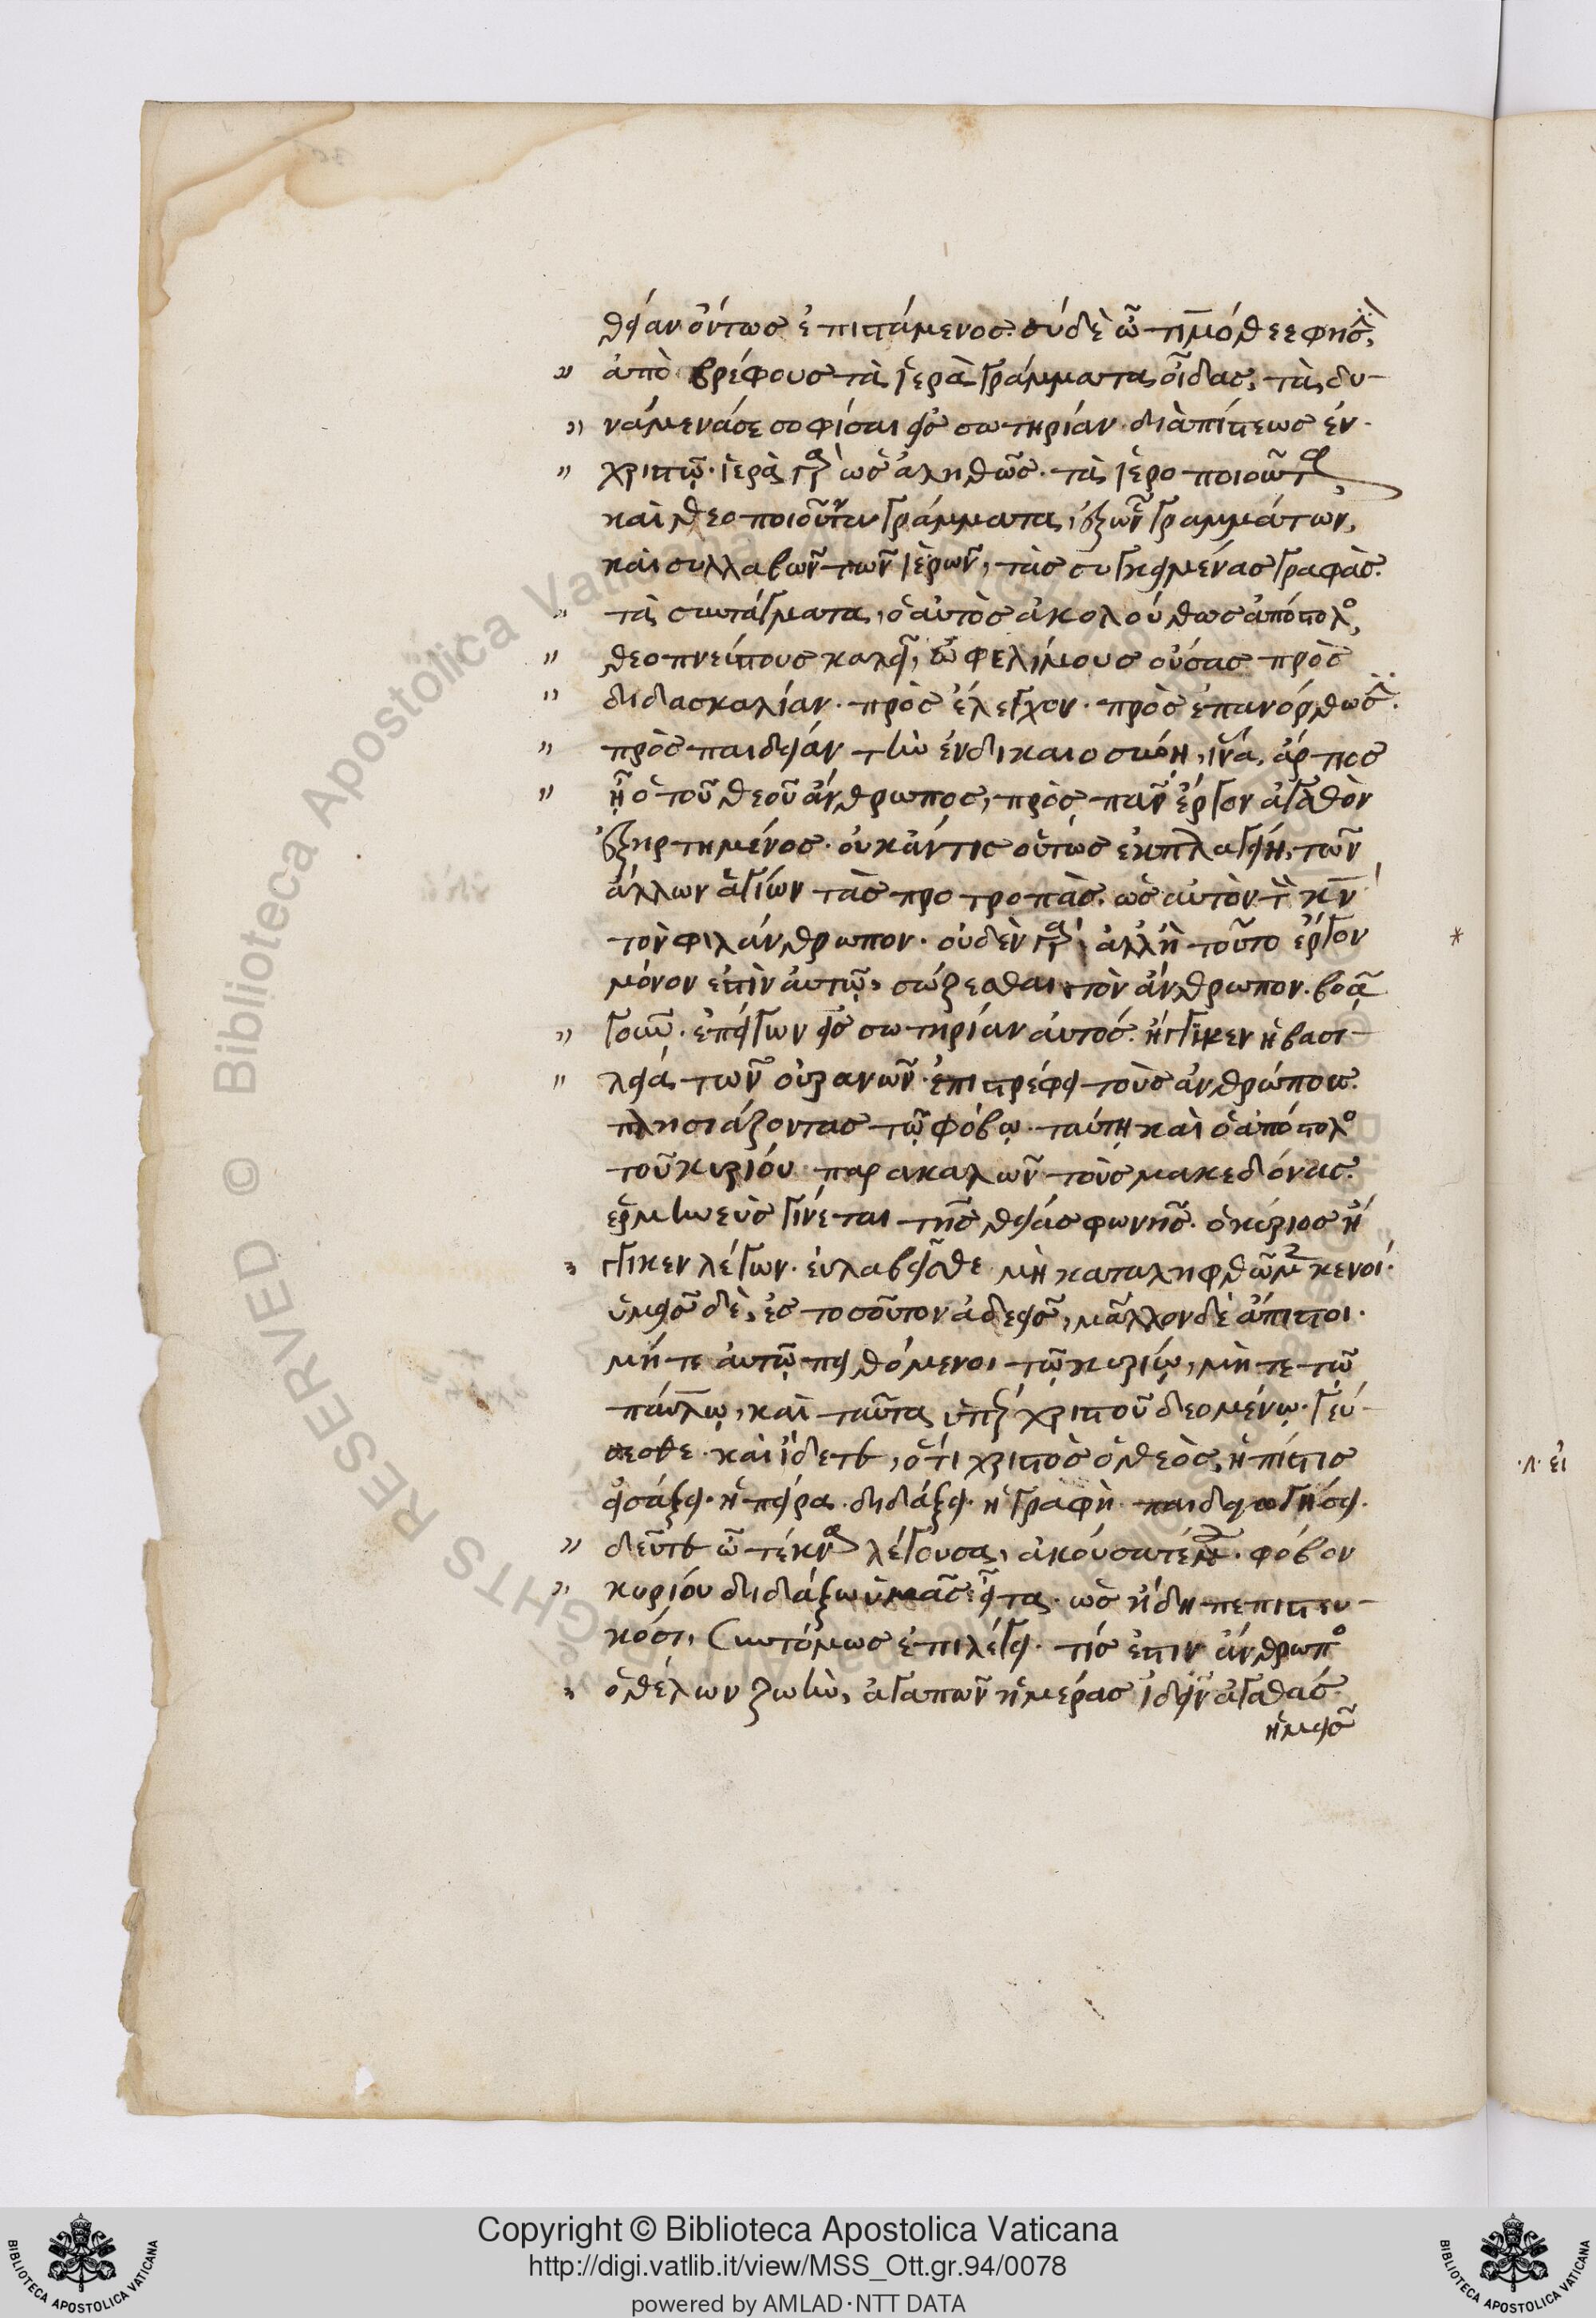 θείαν ὄντως ἐπιστάμενος. σὺ δὲ ὦ τιμόθεε φησὶν,
ἀπὸ βρέφους τὰ ἱερὰ γράμματα οἶδας, τὰ δυ-
νάμενά σε σοφίσαι εἰς σωτηρίαν διὰ πίστεως ἐν
χριστῷ. ἱερὰ γὰρ ὡς ἀληθῶς. τὰ ἱεροποιοῦντα,
καὶ θεοποιοῦντα γράμματα, ἐξ ὧν γραμμάτων,
καὶ συλλαβῶν τῶν ἱερῶν, τὰς συγκειμένας γραφὰς.
τὰ συντάγματα, ὁ αὐτὸς ἀκολούθως ἀπόστολος,
θεοπνεύστους καλεῖ, ὠφελίμους οὔσας πρὸς
διδασκαλίαν. πρὸς ἔλεγχον. πρὸς ἐπανόρθωσιν.
πρὸς παιδείαν τὴν ἐν δικαιοσύνῃ, ἵνα, ἄρτιος
ᾖ ὁ τοῦ θεοῦ ἄνθρωπος, πρὸς πᾶν ἔργον ἀγαθὸν
ἐξηρτημένος. οὐκ ἄν τις οὕτως ἐκπλαγείη, τῶν
ἄλλων ἁγίων τὰς προτροπὰς. ὡς αὐτὸν τὸν κν
τὸν φιλάνθρωπον. οὐδὲν γὰρ, ἀλλ' ἢ τοῦτο ἔργον
μόνον ἐστὶν αὐτῷ, σώζεσθαι τὸν ἄνθρωπον. βοᾷ
γοῦν. ἐπείγων εἰς σωτηρίαν αὐτός. ἤγγικεν ἡ βασι-
λεία τῶν οὐρανῶν. ἐπιστρέφει τοὺς ἀνθρώπους.
πλησιάζοντας τῷ φόβῳ. ταύτῃ καὶ ὁ ἀπόστολος
τοῦ κυρίου παρακαλῶν τοὺς μακεδόνας.
ἑρμηνεὺς γίνεται τῆς θείας φωνῆς. ὁ κύριος ἤγ-
γικεν λέγων. εὐλαβεῖσθε μὴ καταληφθῶμεν κενοί.
ὑμεῖς δὲ, ἐς τοσοῦτον ἀδεεῖς, μᾶλλον δὲ ἄπιστοι.
μήτε αὐτῷ πειθόμενοι τῷ κυρίῳ, μήτε τῷ
παύλῳ, καὶ ταῦτα ὑπὲρ χριστοῦ δεομένῳ. γεύ-
σεσθε καὶ ἴδετε, ὅτι χριστὸς ὁ θεὸς, ἡ πίστις
εἰσάξει. ἡ πεῖρα διδάξει. ἡ γραφὴ παιδαγωγήσει.
δεῦτε ὦ τέκνα λέγουσα, ἀκούσατέ μου. φόβον
κυρίου διδάξω ὑμᾶς εἶτα. ὡς ἤδη πεπιστευ-
κόσι, συντόμως ἐπιλέγει. τίς ἐστιν ἄνθρωπος
ὁ θέλων ζωὴν, ἀγαπῶν ἡμέρας ἰδεῖν ἀγαθάς.
ἡμεῖς
Copyright © Biblioteca Apostolica Vaticana
http://digi.vatlib.it/view/MSS_Ott.gr.94/0078
powered by AMLAD·NTT DATA